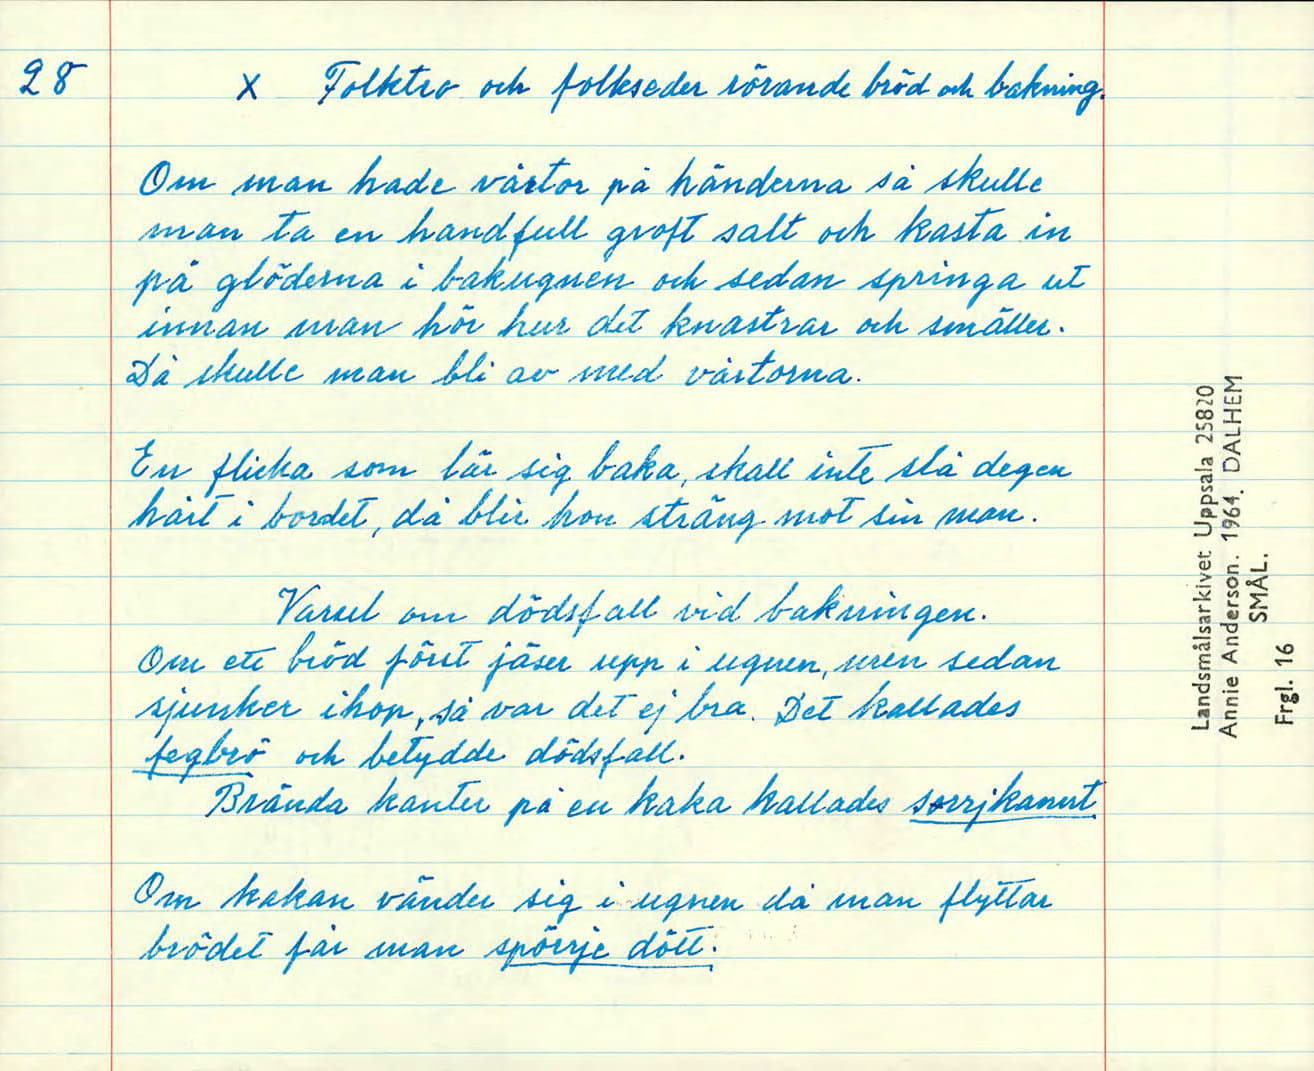 28
x Folktro och folkseder rörande bröd och bakning.
Om man hade vårtor på händerna så skulle
man ta en handfull groft salt och kasta in
på glöderna i bakugnen och sedan springa ut
innan man hör hur det knastrar och smäller.
Då skulle man bli av med vårtorna.
En flicka som lär sig baka, skall inte slå degen
hårt i bordet, då blir hon sträng mot sin man.
Varsel om dödsfall vid bakningen.
Om ett bröd först jäser upp i ugnen, men sedan
sjunker ihop, så var det ej bra. Det kallades
fegbrö och betydde dödsfall.
Brända kanter på en kaka kallades sorrjkannt
Om kakan vänder sig i ugnen då man flyttar
brödet får man spörrje dött.
Landsmålsarkivet Uppsala 25820
Annie Anderson. 1964. DALHEM
SMÅL.
Frgl. 16